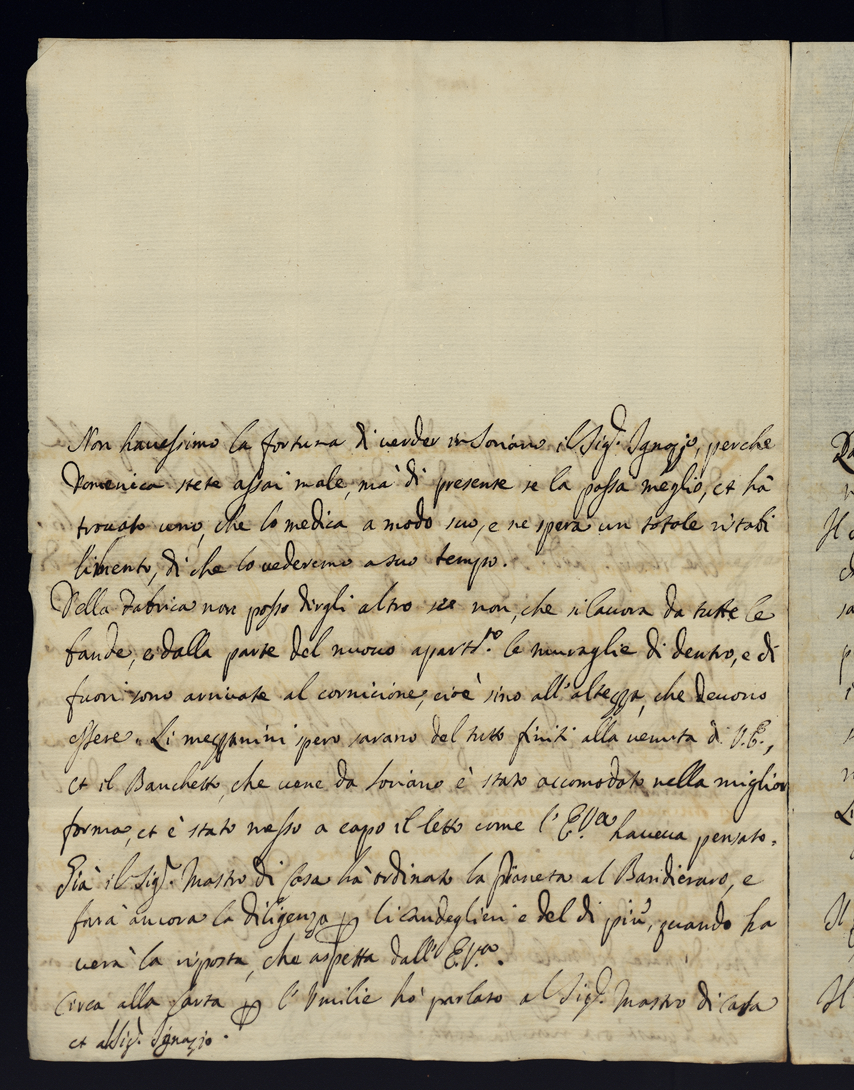 Non hauessimo la fortuna di veder in Soriano il Sig.r Ignazio, perche
Domenica stete assai male, mà di presente se la passa meglio, et hà
trouato uno, che lo medica a modo suo, e ne spera un totale ristabi
limento, di che lo vederemo a suo tempo.
Della Fabrica non posso dirgli altro se non, che si lauora da tutte le
bande, e dalla parte del nuouo apart.to le muraglie di dentro, e di
fuori sono arriuate al cornicione, cioè sino all'altezza, che deuono
essere. Li mezzanini spero sarano del tutto finiti alla venuta di V.E.,
et il Banchetto, che vene da Soriano è stato accomodato nella miglior
forma, et è stato messo a capo il letto come l'E.V.a haueua pensato.
Già il Sig.r Mastro di Casa hà ordinato la pianeta al Bandieraro, e
farà ancora la diligenza p li candeglieri e del di più, quando ha
uerà la risposta, che aspetta dall'E.V.a.
Circa alla carta p l'Vmilie hò parlato al Sig.r Mastro di Casa
et al Sig.r Ignazio.